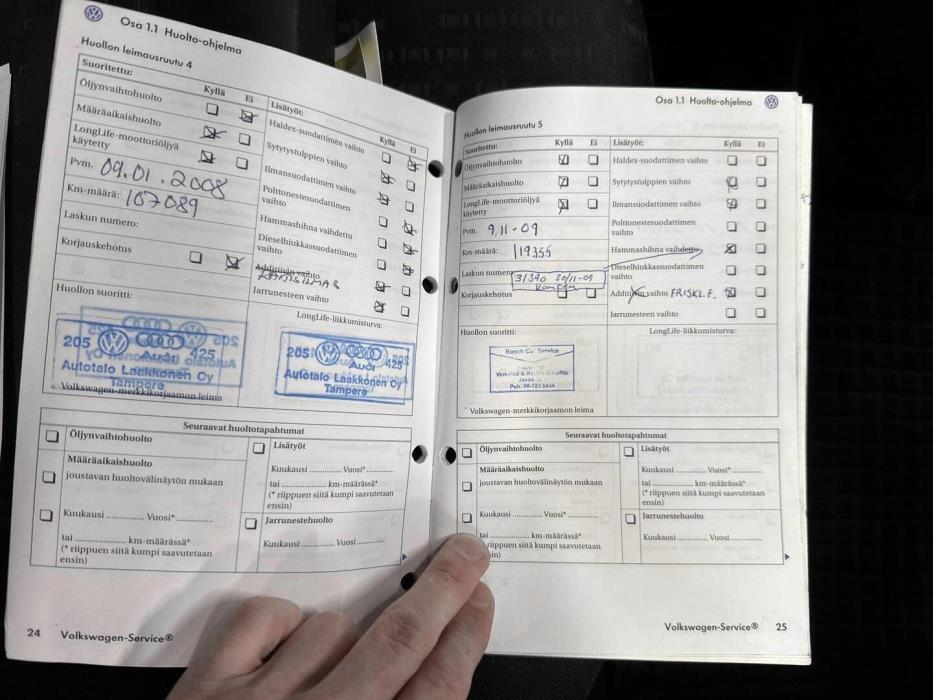 Osa 1.1 Huolto-ohjelma
Huollon leimausruutu 4
Suoritettu:
Kyllä Ei
Öljynvaihtohuolto
Määräaikaishuolto
LongLife-moottoriöljyä
käytetty
Pvm. 09.01.2008
Km-määrä: 107089
Laskun numero:
Korjauskehotus
Huollon suoritti:
205 Audi 425
Autotalo Laakkonen Oy
Tampere
Volkswagen-merkkikorjaamon leima
Lisätyöt:
Kyllä Ei
Haldex-suodattimen vaihto
Sytytystulppien vaihto
Ilmansuodattimen vaihto
Polttonestesuodattimen
vaihto
Hammashihna vaihdettu
Dieselhiukkassuodattimen
vaihto
Additiivin vaihto
Jarrunesteen vaihto
LongLife-liikkumisturva:
205 Audi 425
Autotalo Laakkonen Oy
Tampere
Seuraavat huoltotapahtumat
Öljynvaihtohuolto
Määräaikaishuolto
joustavan huoltovälinäytön mukaan
Kuukausi .............. Vuosi* ..............
tai .................... km-määrässä*
(* riippuen siitä kumpi saavutetaan
ensin)
Lisätyöt
Kuukausi ............ Vuosi*............
tai .................... km-määrässä*
(* riippuen siitä kumpi saavutetaan
ensin)
Jarrunestehuolto
Kuukausi .............. Vuosi ..............
24 Volkswagen-Service®
Osa 1.1 Huolto-ohjelma
Huollon leimausruutu 5
Suoritettu:
Kyllä Ei
Öljynvaihtohuolto
Määräaikaishuolto
LongLife-moottoriöljyä
käytetty
Pvm. 9,11-09
Km-määrä: 119355
Laskun numero: 31390 30/11-09
Korjauskehotus
Huollon suoritti:
Bosch Car Service
* Volkswagen-merkkikorjaamon leima
Lisätyöt:
Kyllä Ei
Haldex-suodattimen vaihto
Sytytystulppien vaihto
Ilmansuodattimen vaihto
Polttonestesuodattimen
vaihto
Hammashihna vaihdettu
Dieselhiukkassuodattimen
vaihto
Additiivin vaihto FRISKL.F.
Jarrunesteen vaihto
LongLife-liikkumisturva:
Seuraavat huoltotapahtumat
Öljynvaihtohuolto
Määräaikaishuolto
joustavan huoltovälinäytön mukaan
Kuukausi .............. Vuosi*..............
tai .................... km-määrässä*
riippuen siitä kumpi saavutetaan
Lisätyöt
Kuukausi ............ Vuosi*............
tai .................... km-määrässä*
(* riippuen siitä kumpi saavutetaan
ensin)
Jarrunestehuolto
Kuukausi .............. Vuosi ..............
Volkswagen-Service® 25